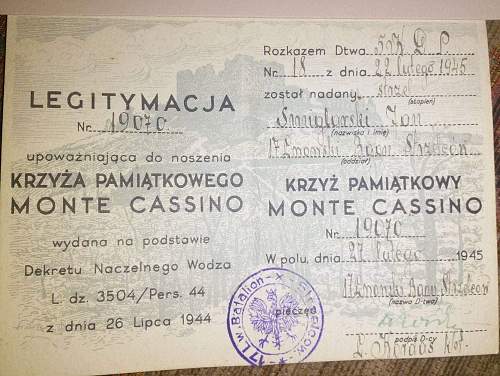 LEGITYMACJA
Nr. 19070
upoważniająca do noszenia
KRZYŻA PAMIĄTKOWEGO
MONTE CASSINO
wydana na podstawie
Dekretu Naczelnego Wodza
L. dz. 3504/Pers. 44
z dnia 26 Lipca 1944
Rozkazem Dtwa 5 K D. P.
Nr. 18 z dnia 22 lutego 1945
został nadany strzel
(stopień)
Śmiglarski Jan
(nazwisko i imię)
17 Lwowski Baon Strzelców
(oddział)
KRZYŻ PAMIĄTKOWY
MONTE CASSINO
Nr. 19070
W polu, dnia 27 lutego 1945
17 Lwowski Baon Strzelców
(nazwa D-twa)
pieczęć
podpis D-cy
17 Lw. Batalion Strzelców